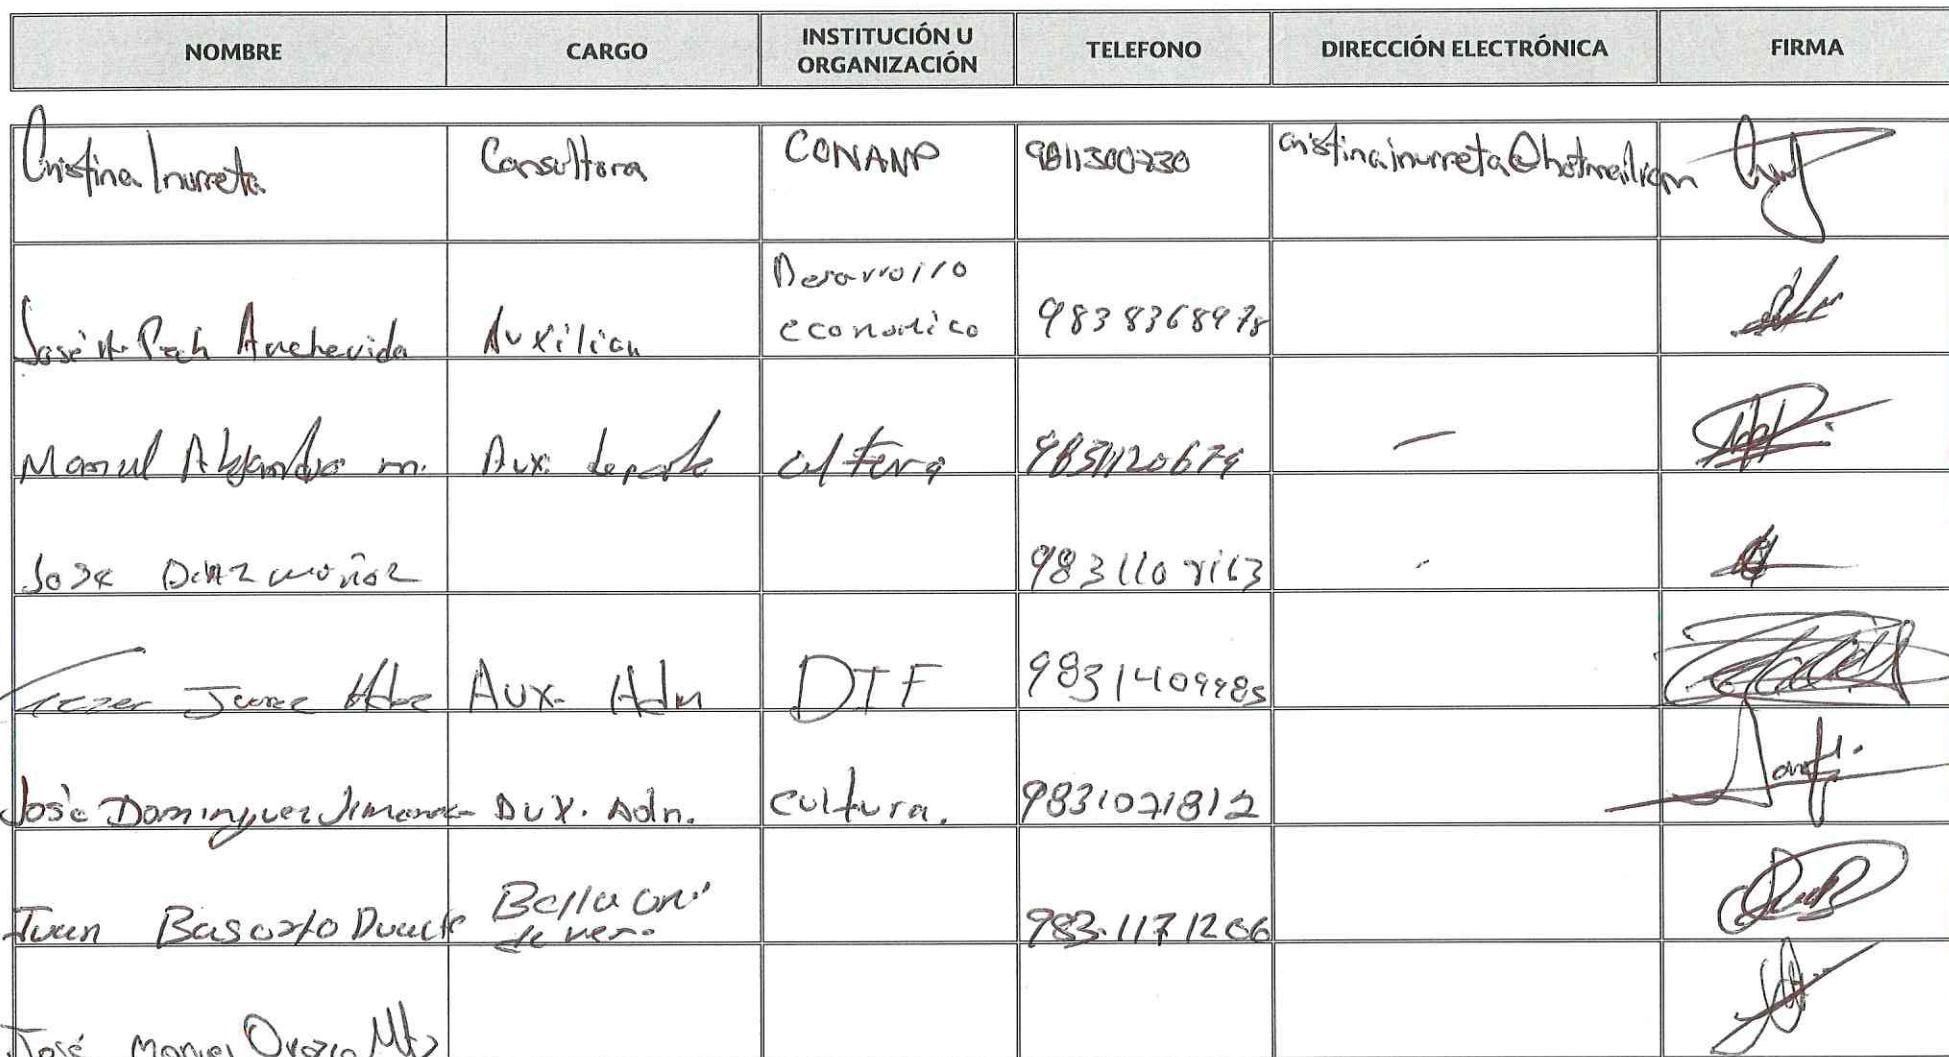 NOMBRE CARGO INSTITUCIÓN U ORGANIZACIÓN TELEFONO DIRECCIÓN ELECTRÓNICA FIRMA
Cristina Inurreta Consultora CONANP 9811300230 cristinainurreta@hotmail.com
José Pech Auxiliar Desarrollo economico 9838368978
Manuel Alejandro m. Aux. deporte cultura —
Jose Diaz muñoz
Aux. Adm DIF
José Dominguez Jimenez Aux. Adn. cultura. 9831071812
Juan Basorto Duarte 983.1171206
José Manuel Orozco Mtz